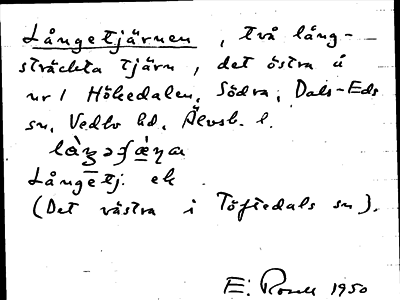 Långetjärnen, två lång-
sträckta tjärn, det östra å
nr 1 Hökedalen, Södra, Dals-Eds
sn, Vedbo hd, Älvsb. l.
Långetj. ek
(Det västra i Töftedals sn).
E. 1950